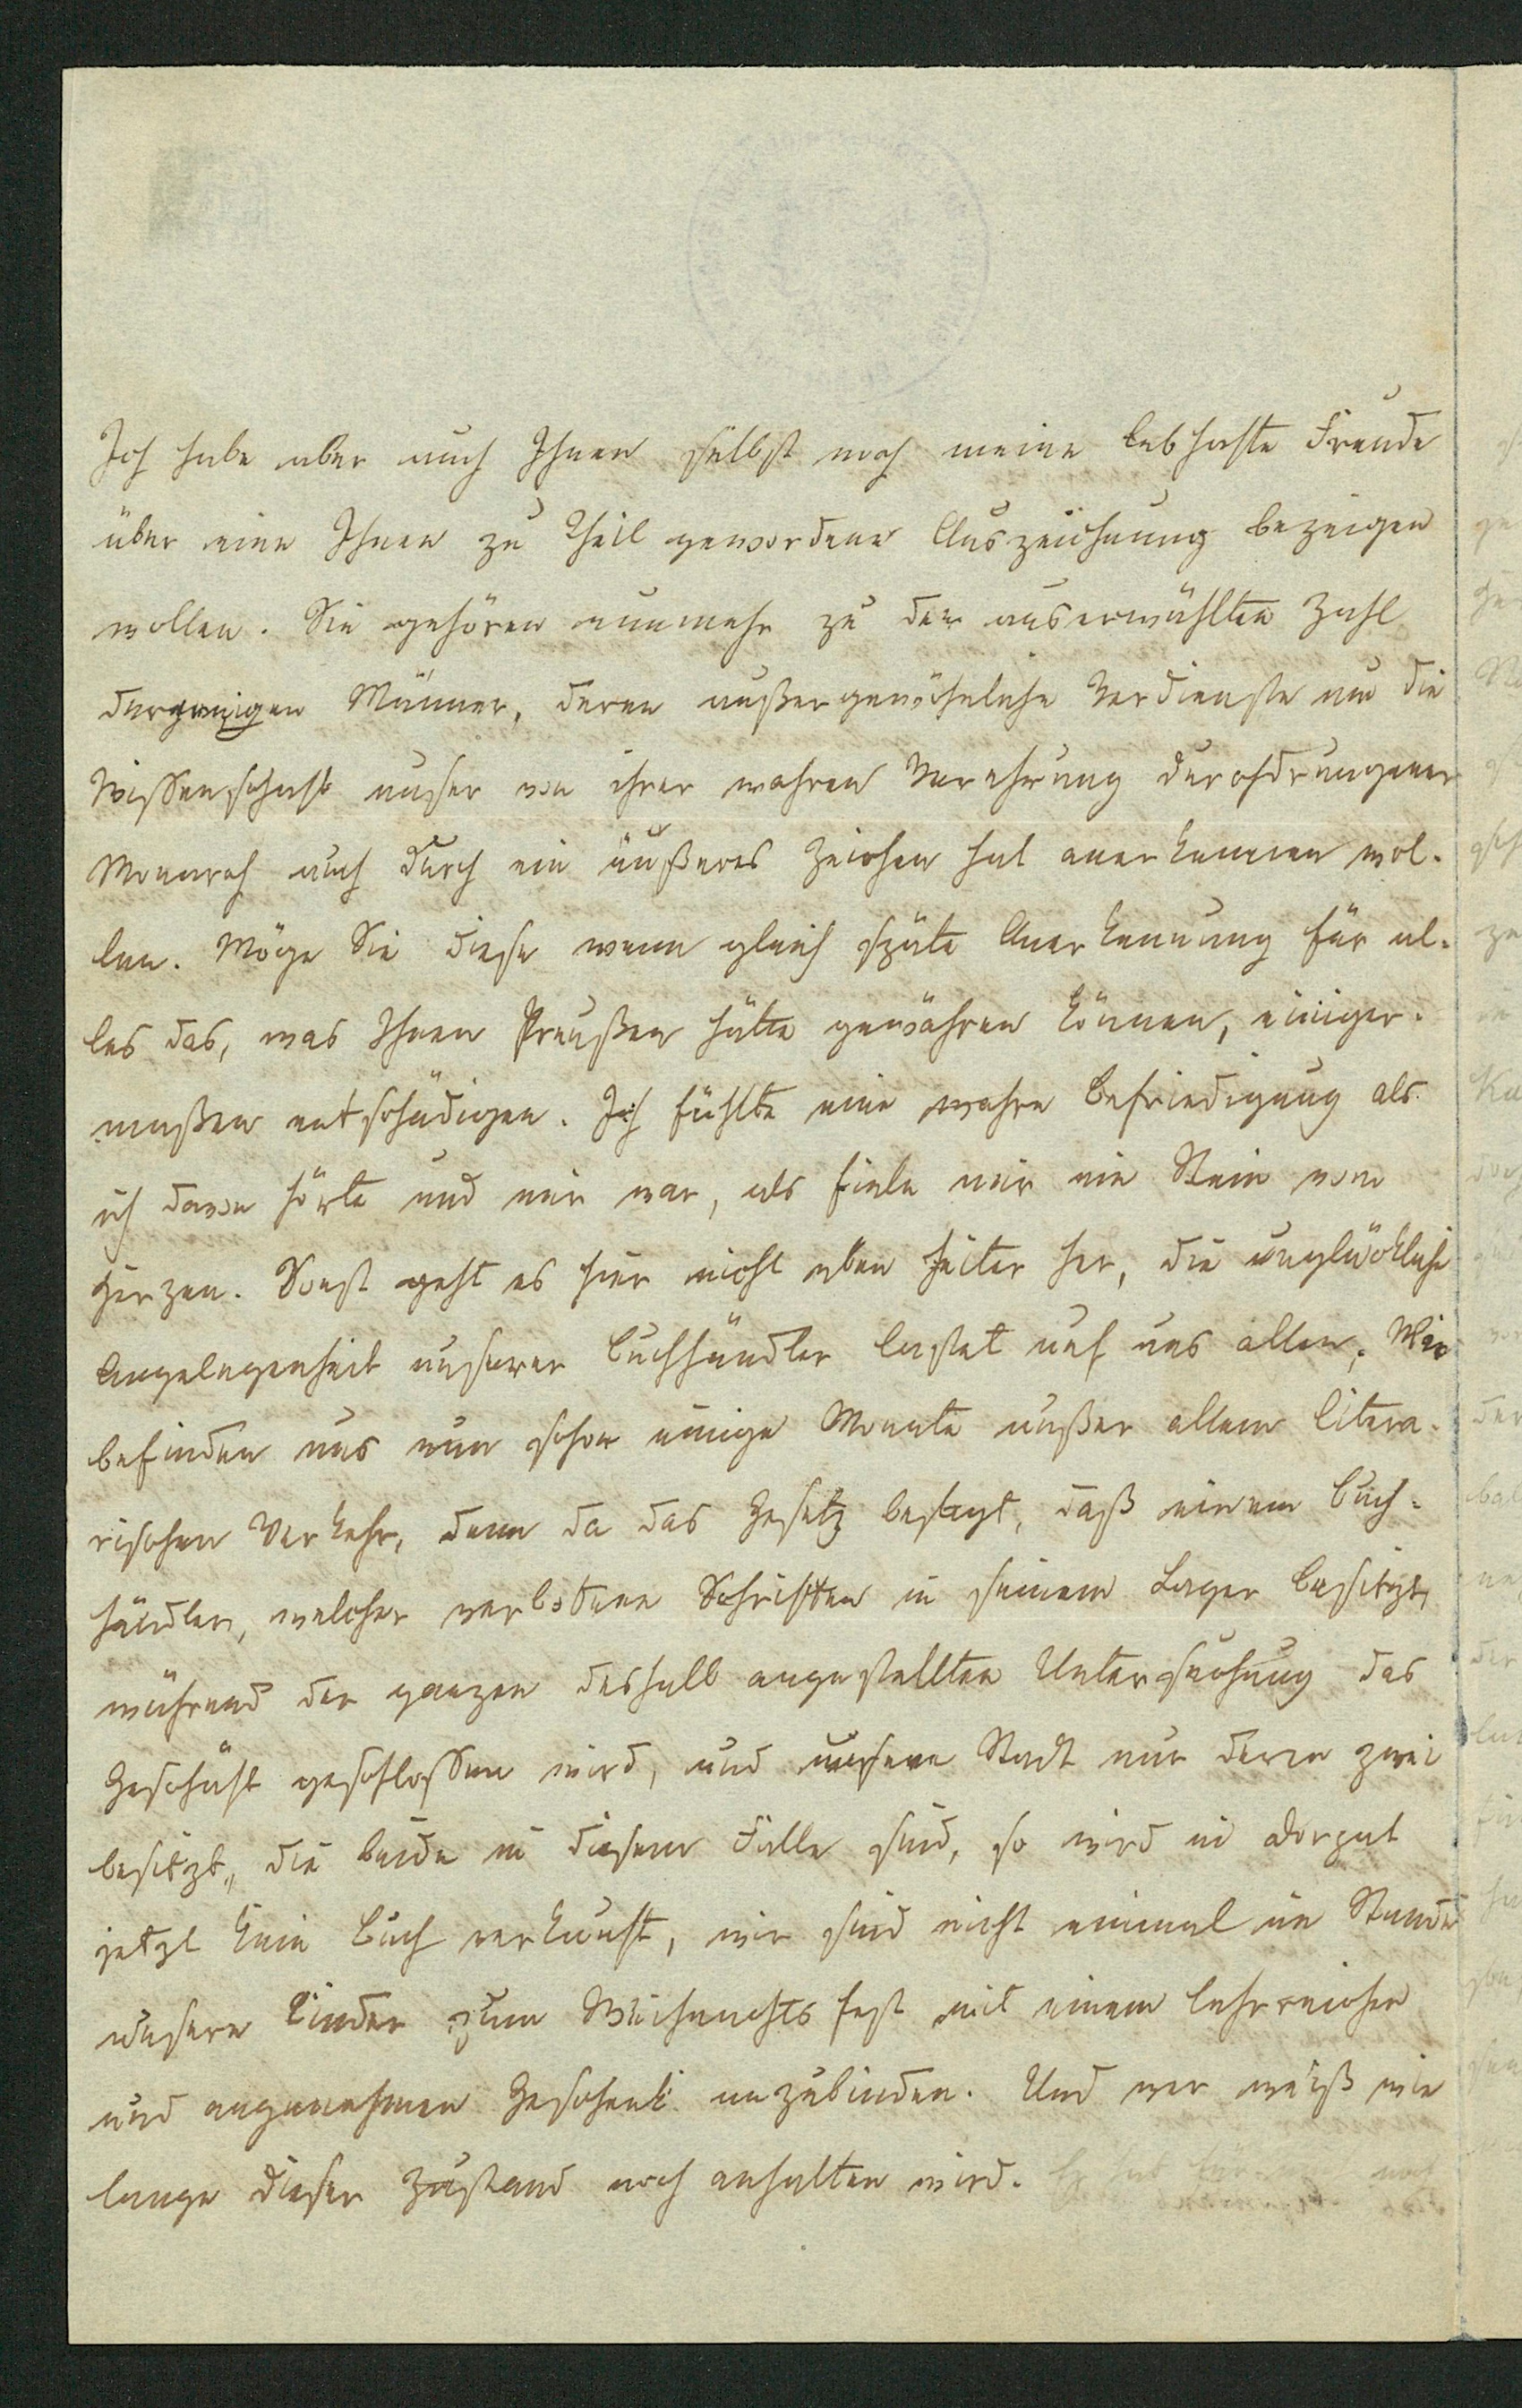 Ich habe aber auch Ihnen selbst noch meine lebhafte Freude
über eine Ihnen zu Theil gewordene Auszeichnung bezeigen
wollen. Sie gehören nunmehr zu der auserwählten Zahl
derjenigen Männer, deren außergewöhnliche Verdienste um die
Wissenschaft unser von ihrer wahren Verehrung durchdrungener
Monarch auch durch ein äußeres Zeichen hat anerkennen wol-
len. Möge Sie diese wenn gleich späte Anerkennung für al-
les das, was Ihnen Preußen hätte gewähren können, einiger-
maßen entschädigen. Ich fühlte eine wahre Befriedigung als
ich davon hörte und mir war, als fiele mir ein Stein vom
Herzen. Sonst geht es hier nicht eben heiter her, die unglückliche
Angelegenheit unserer Buchhändler lastet auf uns allen. Wir
befinden uns nun schon einige Monate außer allem litera-
rischen Verkehr, denn da das Gesetz besagt, daß einem Buch-
händler, welcher verbotene Schriften in seinem Lager besitzt,
während der ganzen deshalb angestellten Untersuchung das
Geschäft geschlossen wird, und unsere Stadt nur deren zwei
besitzt, die beide in diesem Falle sind, so wird in Dorpat
jetzt kein Buch verkauft, wir sind nicht einmal im Stande
unsere Kinder zum Weihnachtsfest mit einem lehrreichen
und angenehmen Geschenk anzubinden. Und wer weiß wie
lange dieser Zustand noch anhalten wird.